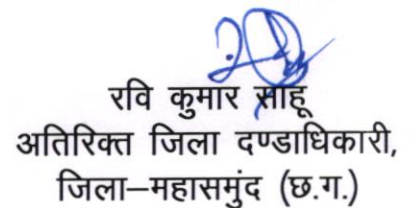 रवि कुमार साहू
अतिरिक्त जिला दण्डाधिकारी,
जिला–महासमुंद (छ.ग.)